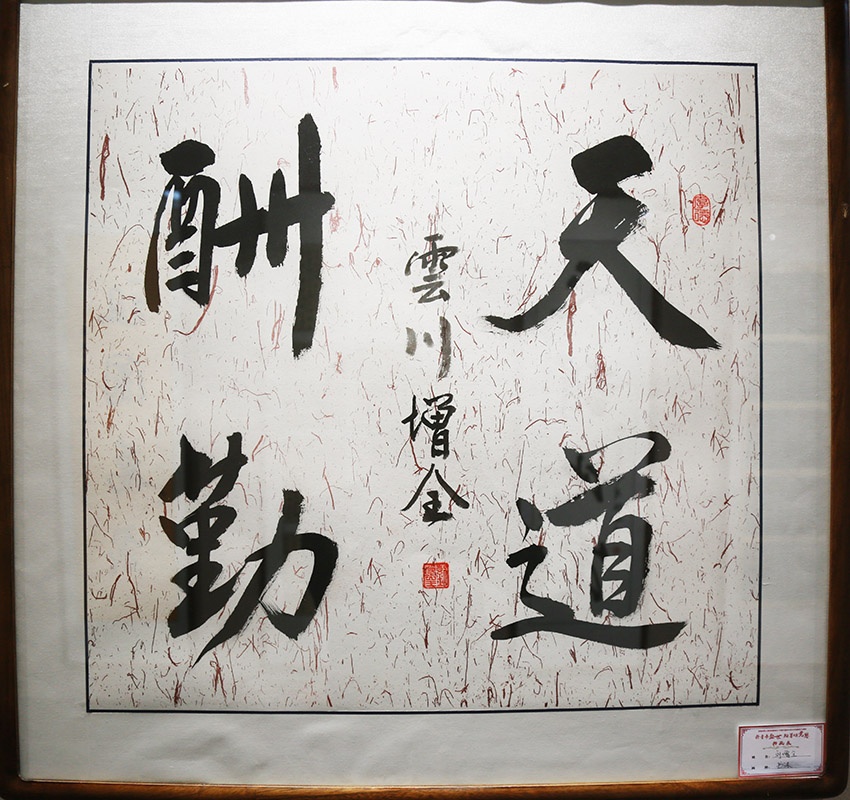 天道
酬勤
雲川增全